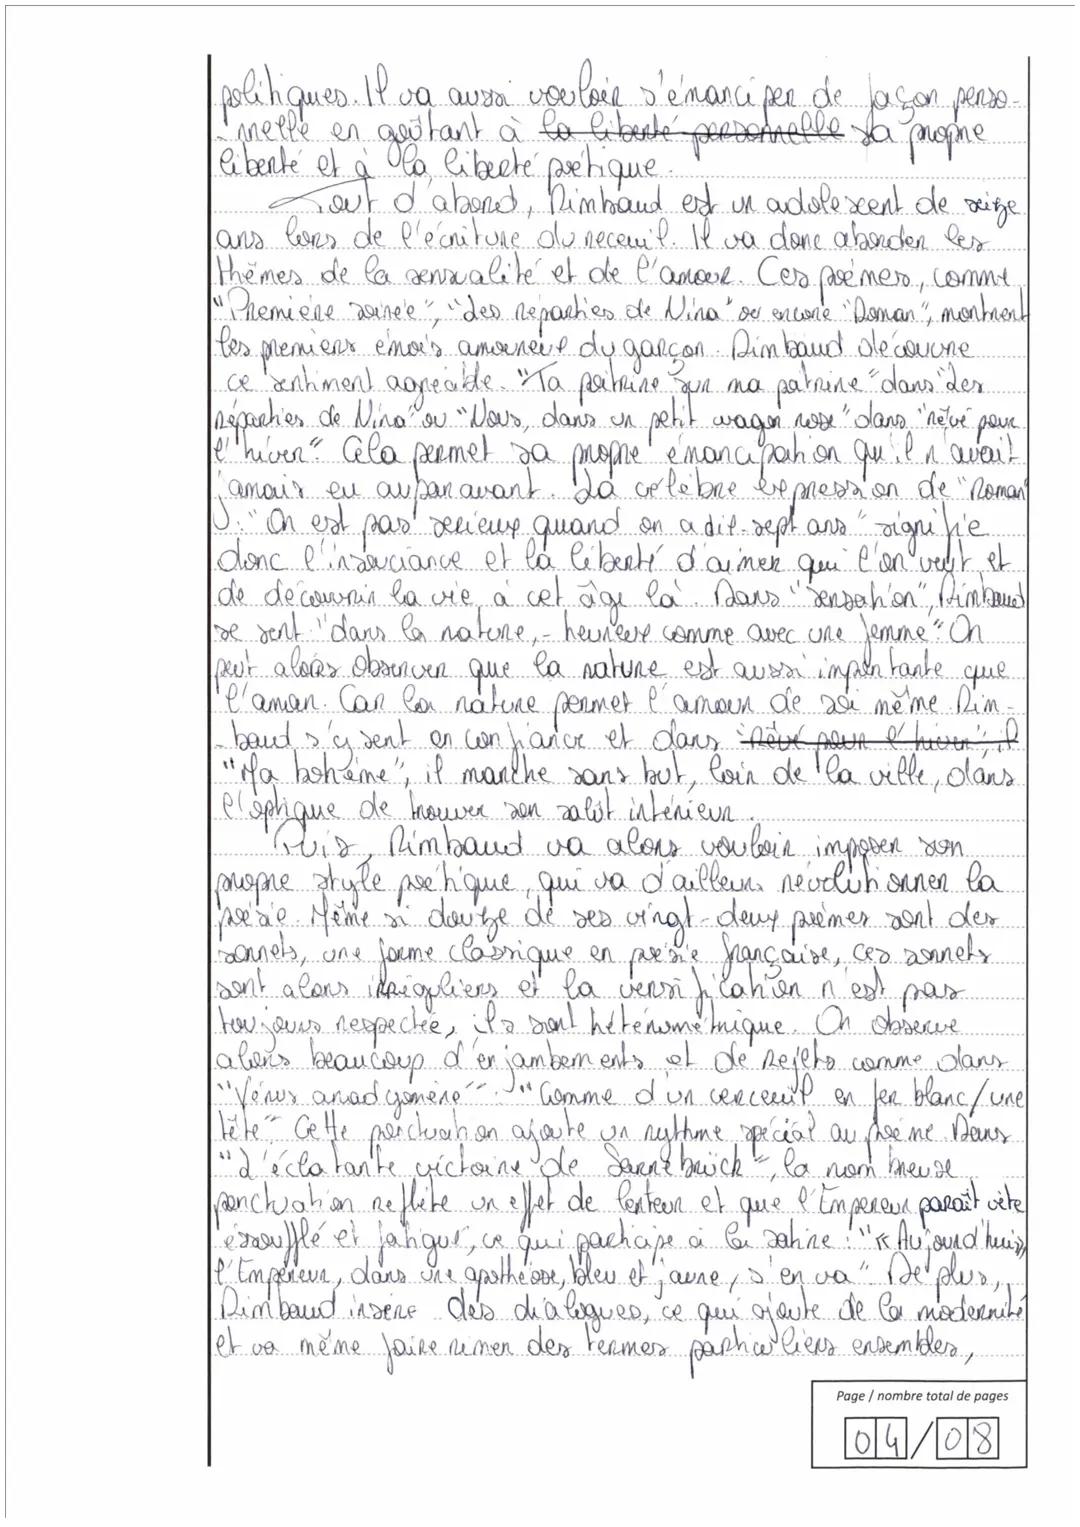 politiques. Il va aussi vouloir s'émanciper de façon perso-
-nnelle en goûtant à la liberté personnelle sa propre
liberté et à la liberté poétique.
Tout d'abord, Rimbaud est un adolescent de seize
ans lors de l'écriture du receuil. Il va donc aborder les
thèmes de la sensualité et de l'amour. Ces poèmes, comme
"Première soirée", "Les réparties de Nina" ou encore "Roman", montrent
les premiers émois amoureux du garçon. Rimbaud découvre
ce sentiment agréable. "Ta poitrine sur ma poitrine" dans "Les
réparties de Nina" ou "Nous, dans un petit wagon rose" dans "rêvé pour
l'hiver". Cela permet sa propre émancipation qu'il n'avait
jamais eu auparavant. La célèbre expression de "Roman"
: "On est pas serieux quand on a dit-sept ans" signifie
donc l'insouciance et la liberté d'aimer qui l'on veut et
de découvrir la vie à cet âge là. Dans "Sensation", Rimbaud
se sent "dans la nature, - heureux comme avec une femme". On
peut alors observer que la nature est aussi importante que
l'amour. Car la nature permet l'amour de soi même. Rim-
-baud s'y sent en confiance et dans "Rêvé pour l'hiver", il
"Ma bohème", il marche sans but, loin de la ville, dans
l'optique de trouver son salut intérieur.
Puis, Rimbaud va alors vouloir imposer son
propre style poétique, qui va d'ailleurs révolutionner la
poésie. Même si douze de ses vingt-deux poèmes sont des
sonnets, une forme classique en poésie française, ces sonnets
sont alors irréguliers et la versification n'est pas
toujours respectée, ils sont hétérométrique. On observe
alors beaucoup d'enjambements et de rejets comme dans
"Vénus anadyomène" : "Comme d'un cerceuil en fer blanc/une
tête". Cette ponctuation ajoute un rythme spécial au poème. Dans
"L'éclatante victoire de Sarrebrück", la nombreuse
ponctuation reflète un effet de lenteur et que l'Empereur paraît vite
éssoufflé et fatigué, ce qui participe à la satire : "« Aujourd'hui»,
l'Empereur, dans une apothéose, bleu et jaune, s'en va". De plus,
Rimbaud insère des dialogues, ce qui ajoute de la modernité
et va même faire rimer des termes particuliers ensembles,
Page / nombre total de pages
04/08